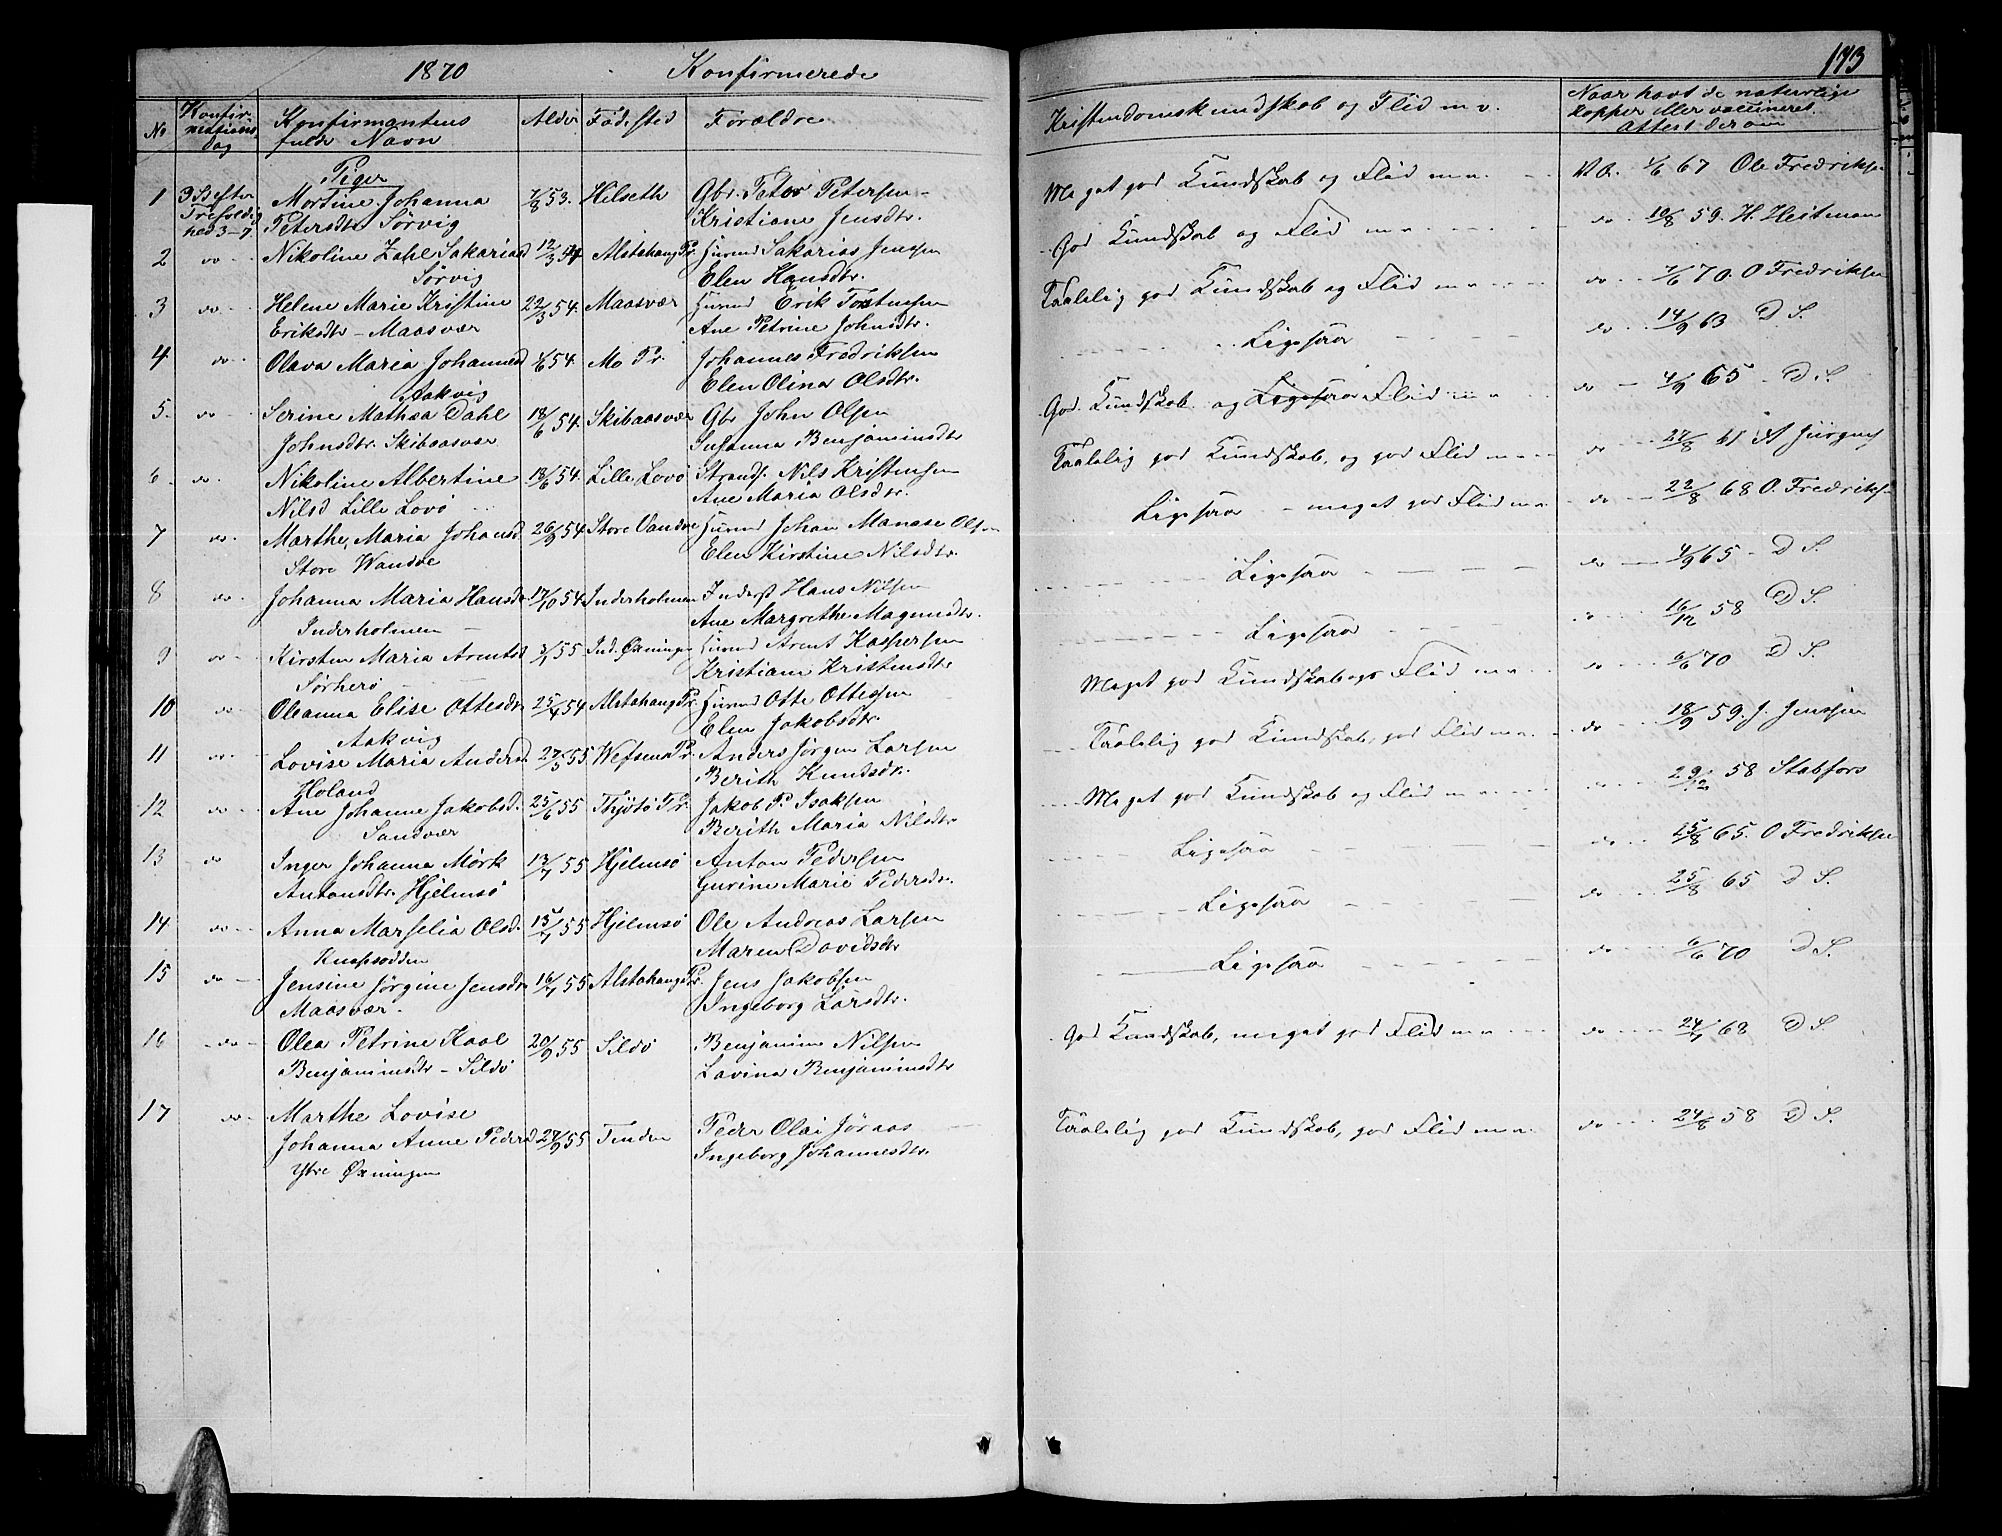 1870 Konfirmerede
173
No Konfirmations dag Konfirmantens fulde Navn Alder Fødested Forældre Kristendomskundskab og Flid m. v. Naar havt de naturlige Kopper eller vaccineret. Attest derom
Piger
1 3 S. efter Trefoldighed 3-7 Mortine Johanna 53. Hilseth Gbr. Peter Petersen - Meget god Kundskab og Flid m. v. 67 Ole Fredriksen
Petersdtr Sørvig Kristiane Jensdtr.
2 do Nikoline Zahl Sakariasd 12/3 54 Alstahaug Pr. Huusmd Sakarias Jensen God Kundskab og Flid m. v. do 10/8 59. H. Heitman
Sørvig Elen Hansdtr.
3 do Helene Marie Kristine 22/3 54. Maasvær Huusmd Erik Tostensen Taalelig god Kundskab og Flid m. v. do 70. O Fredriksen
Eriksdtr - Maasvær Ane Petrine Johnsdtr.
4 do Olava Maria Johannesd 54. Mo Pr. Johannes Fredriksen Ligesaa do 14/9 63 D S.
Aakvig Elen Olina Olsdtr.
5. do Serine Mathea Dahl 18/6 54. Skibaasvær Gbr John Olsen God Kundskab og Ligesaa Flid m v do 4/9 65 - D S.
Johnsdtr. Skibaasvær Susanna Benjaminsdtr
6 do. Nikoline Albertine 18/6 54. Lille Lovø Strands. Nils Kristensen Taalelig god Kundskab, og god Flid m v do 27/8 61 A Jürgens
Nilsd Lille Lovø Ane Maria Olsdtr.
7 do. Marthe Maria Johansd 26/9 54 Store Vandve Huusmd Johan Manase Olsen Ligesaa - meget god Flid m v do 22/8 68 O. Fredriksen
Store Wandve Elen Kirstine Nilsdtr.
8 do. Johanna Maria Hansdr 17/10 54 Inderholmen Inderst Hans Nilsen Ligesaa do 4/9 65 - D S.
Inderholmen - Ane Margrethe Magnusdtr.
9 do Kirsten Maria Arentsd 3/1 55 Ind. Øxningen Huusmd Arent Kaspersen Ligesaa 16/12 58 D S.
Sørherø Kristiane Kristensdtr
10 do Oleanna Elise Ottesdtr 25/4 54 Alstahaug Pr. Huusmd Otte Ottesen Meget god Kundskab og Flid m v do 6/6 70 D S.
Aakvig Elen Jakobsdtr.
11 do Lovise Maria Andersd 27/5 55 Wefsens Pr. Anders Jørgen Larsen Taalelig god Kundskab, god Flid m v. do 18/9 59. J. Jenssen
Holand Berith Knudsdr.
12 do Ane Johanne Jakobsd. 25/6 55 Thjøtø Pr. Jakob P. Isaksen Meget god Kundskab og Flid m v. 29/12 58 Stabfors
Sandvær Berith Maria Nilsdtr
13 do Inger Johanna Mørk 13/7 55 Hjelmsø Anton Pedersen Ligesaa do 25/8 65. O Fredriksen
Antonsdtr. Hjelmsø Gurine Marie Pedersdr.
14 do Anna Marselia Olsd. 15/7 55 Hjelmsø Ole Andreas Larsen Ligesaa do 25/8 65 D S.
Knapsodden Maren Davidsdtr
15 do Jensine Jørgine Jensdr 16/7 55 Alstahaug Pr. Jens Jakobsen Ligesaa do 6/6 70 D S.
Maasvær. Ingeborg Larsdtr.
16 do Olea Petrine Kaal 20/9 55 Sildø Benjamin Nilsen God Kundskab, meget god Flid m v do 24/7 68 D S
Benjaminsdtr - Sildø Lovina Benjaminsdtr
17 do Marthe Lovise
Johanna Anne Pedersd 24/9 55 Tenden Peder Olai Jønas Taalelig god Kundskab, god Flid m v. do 24/8 58 D S.
Ytre Øxningen Ingeborg Johannesdtr.